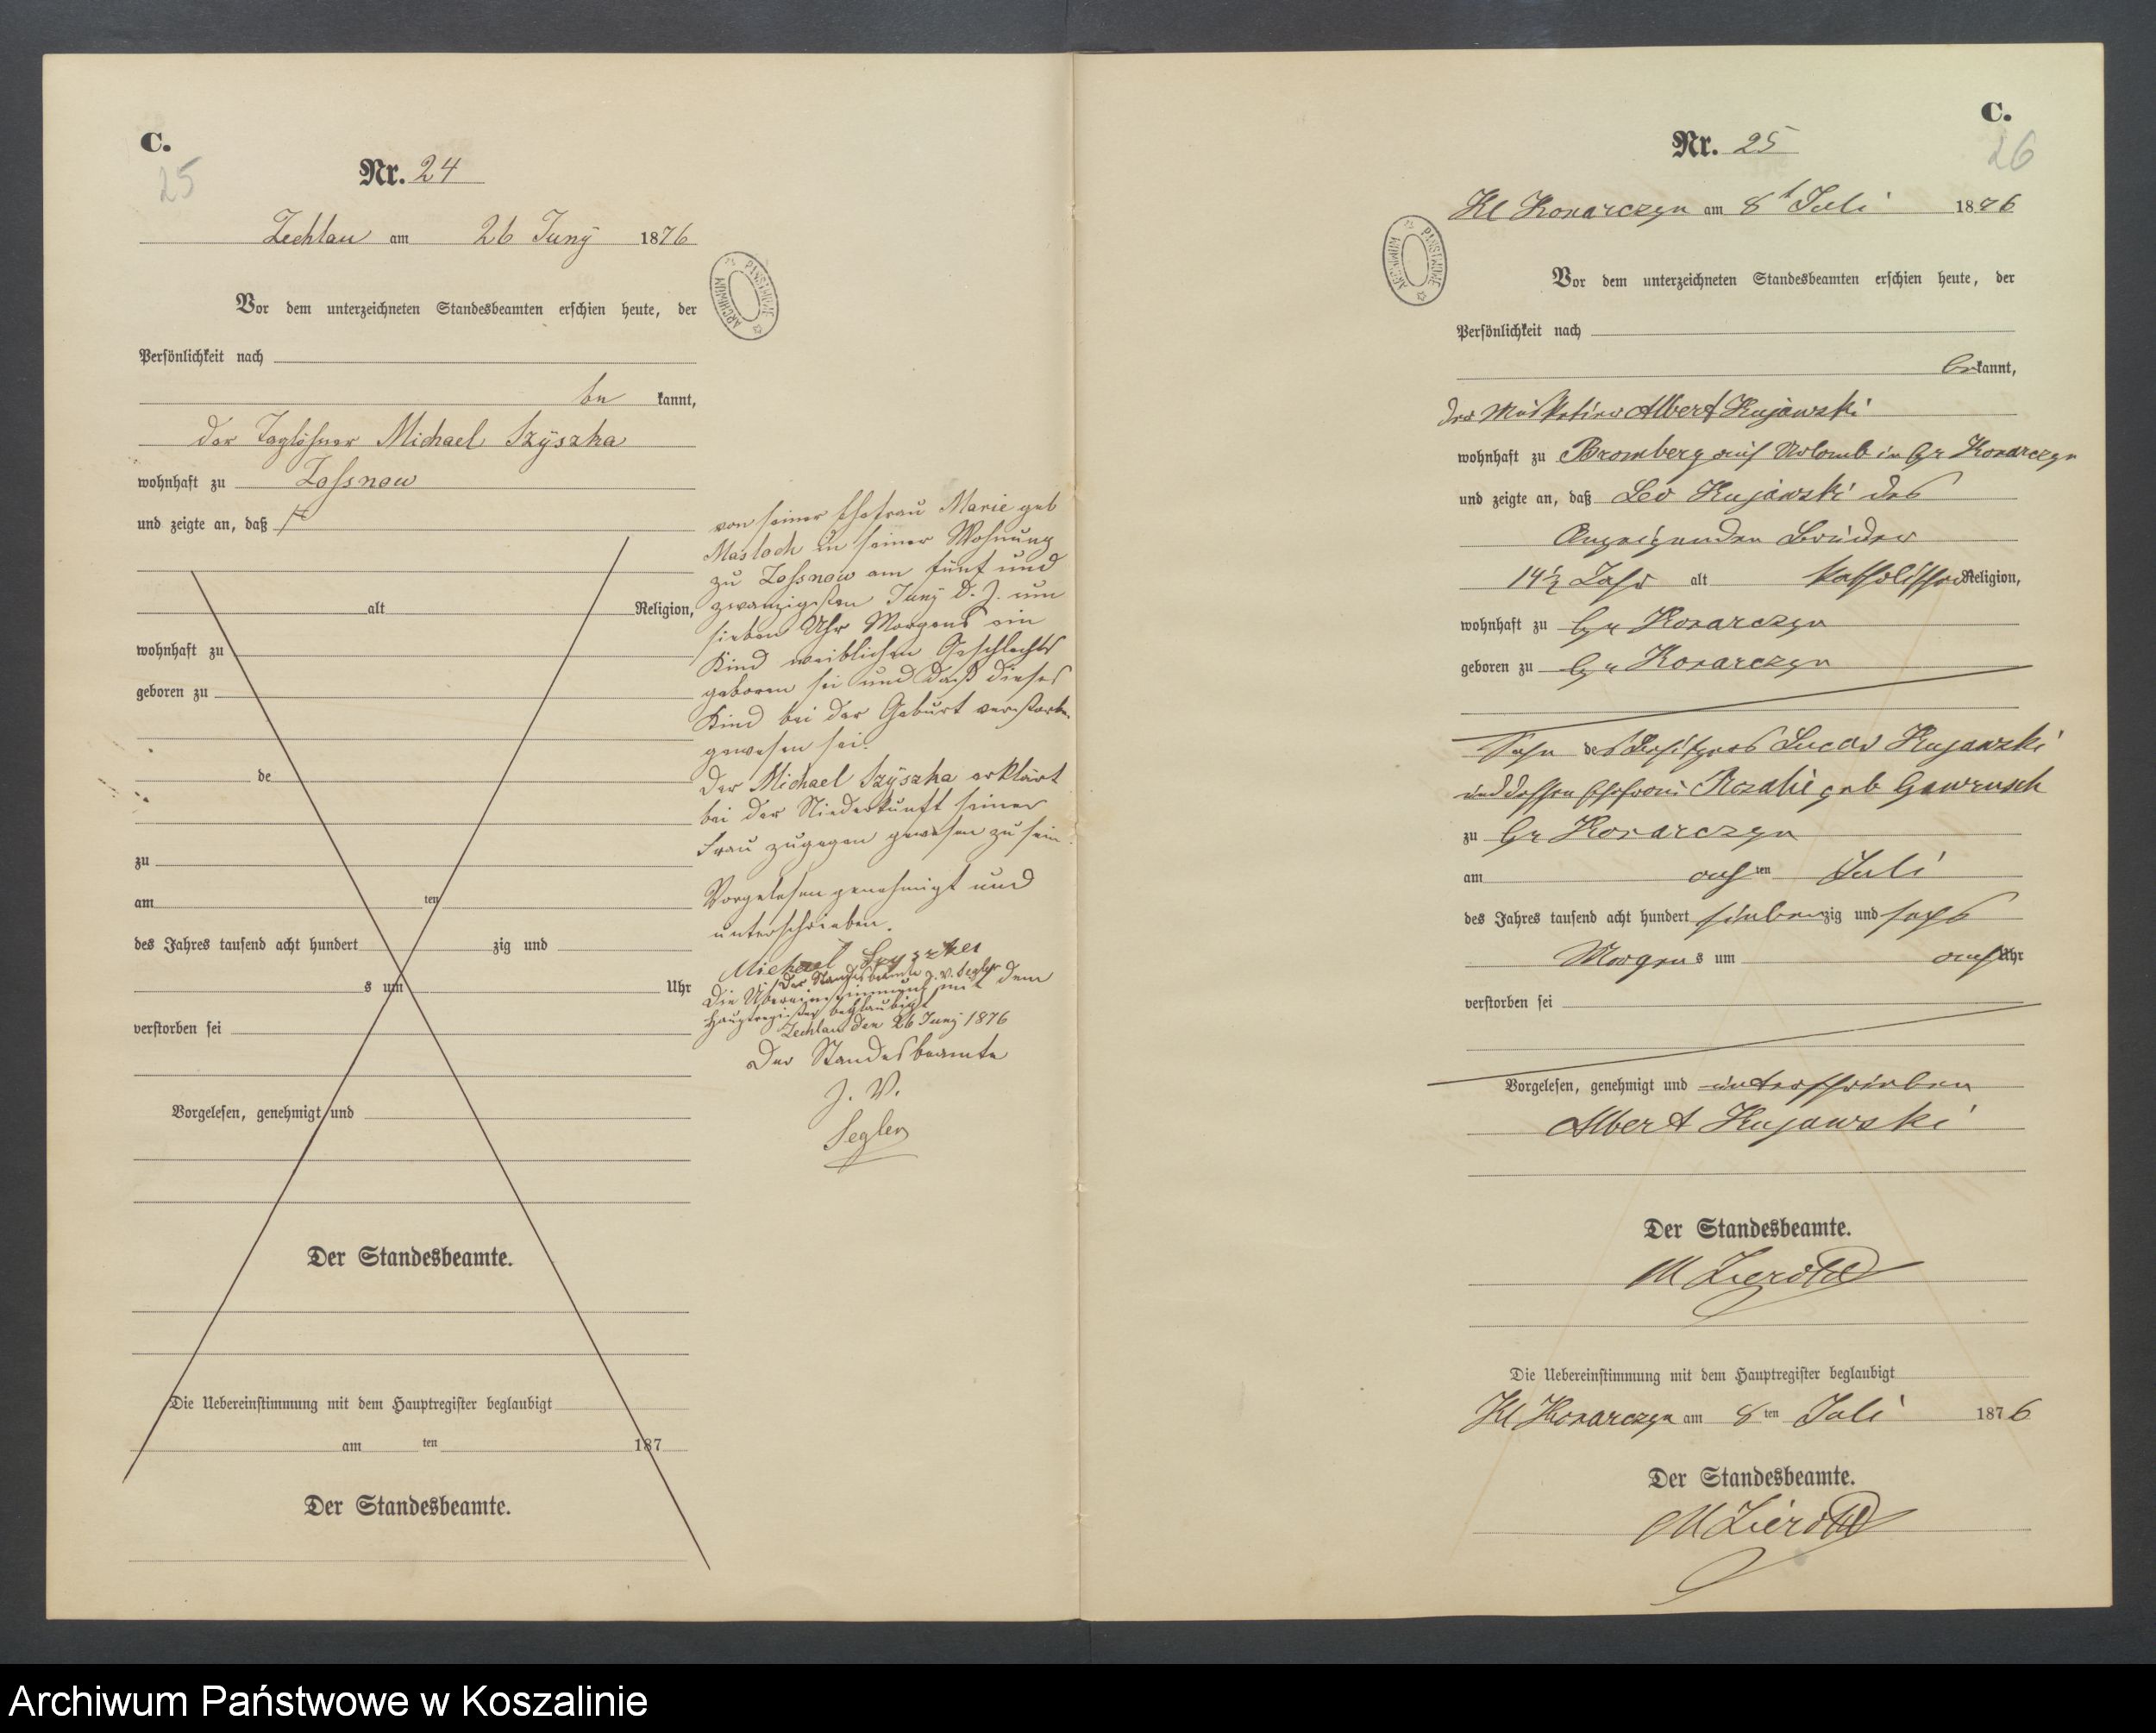 C.
25
Nr. 24
Zechlau am 26 Juny 1876
Vor dem unterzeichneten Standesbeamten erschien heute, der
Persönlichkeit nach
be kannt,
der Taglöhner Michael Szÿszka
wohnhaft zu Zossnow
und zeigte an, daß
alt Religion,
wohnhaft zu
geboren zu
de
zu
am ten
des Jahres tausend acht hundert zig und
s um Uhr
verstorben sei
Vorgelesen, genehmigt und
Der Standesbeamte.
Die Uebereinstimmung mit dem Hauptregister beglaubigt
am ten 187
Der Standesbeamte.
ARCHIWUM PAŃSTWOWE
von seiner Ehefrau Marie geb
Masloch in seiner Wohnung
zu Zossnow am fünf und
zwanzigsten Juny d. J. um
sieben Uhr Morgens ein
Kind weiblichen Geschlechts
geboren sei und daß dieses
Kind bei der Geburt verstorben
gewesen sei.
Der Michael Szÿszka erklärt
bei der Niederkunft seiner
Frau zugegen gewesen zu sein.
Vorgelesen genehmigt und
unterschrieben.
Michael Szyszka
Der Standesbeamte J. V. Segler
Die Übereinstimmung mit dem
Hauptregister beglaubigt
Zechlau den 26 Juny 1876
Der Standesbeamte
J. V.
Segler
C.
26
Nr. 25
Kl Konarczyn am 8t Juli 1876
ARCHIWUM PAŃSTWOWE
Vor dem unterzeichneten Standesbeamten erschien heute, der
Persönlichkeit nach
be kannt,
der Musketier Albert Kujawski
wohnhaft zu Bromberg auf Urlaub in Gr Konarczyn
und zeigte an, daß Leo Kujawski des
Anzeigenden Bruder
14½ Jahr alt katholischer Religion,
wohnhaft zu Gr Konarczyn
geboren zu Gr Konarczyn
Sohn des Besitzers Lucas Kujawski
und dessen Ehefrau Rozalie geb Gawrusch
zu Gr Konarczyn
am acht ten Juli
des Jahres tausend acht hundert siebenzig und sechs
Morgens um acht Uhr
verstorben sei
Vorgelesen, genehmigt und unterschrieben
Albert Kujawski
Der Standesbeamte.
M Zierold
Die Uebereinstimmung mit dem Hauptregister beglaubigt
Kl Konarczyn am 8 ten Juli 1876
Der Standesbeamte.
M Zierold
Archiwum Państwowe w Koszalinie